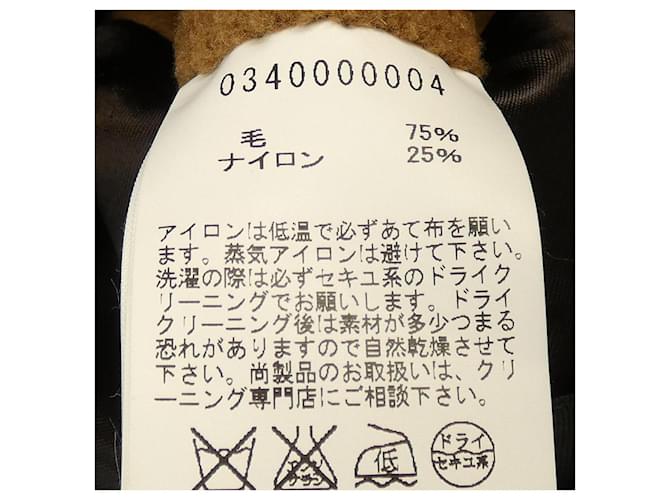 0340000004
毛 75%
ナイロン 25%
アイロンは低温で必ずあて布を願い
ます。蒸気アイロンは避けて下さい。
洗濯の際は必ずセキユ系のドライク
リーニングでお願いします。ドライ
クリーニング後は素材が多少つまる
恐れがありますので自然乾燥させて
下さい。尚製品のお取扱いは、クリ
ーニング専門店にご相談下さい。
エンソ
サラシ
低
ドライ
セキユ系